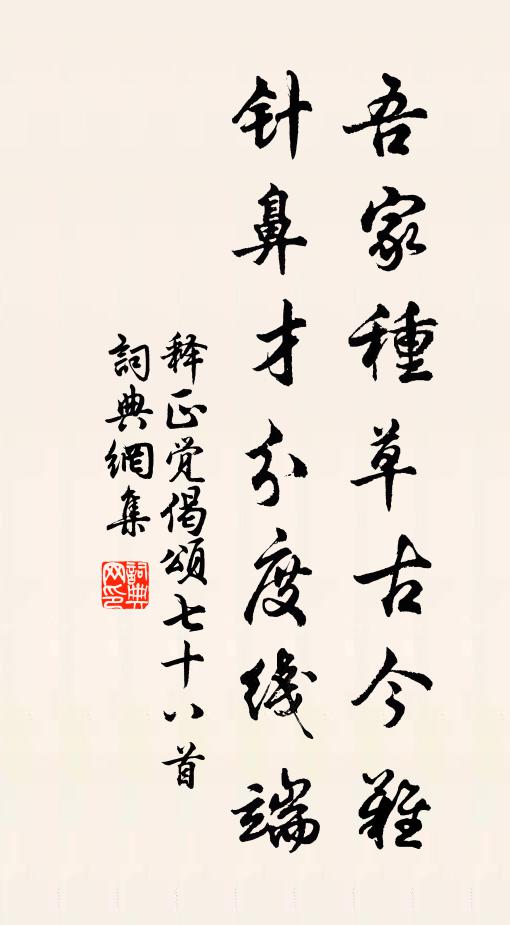 吾家種草古今難
针鼻才分度线端
释正觉偈頌七十八首
詞典網集
詞典网印